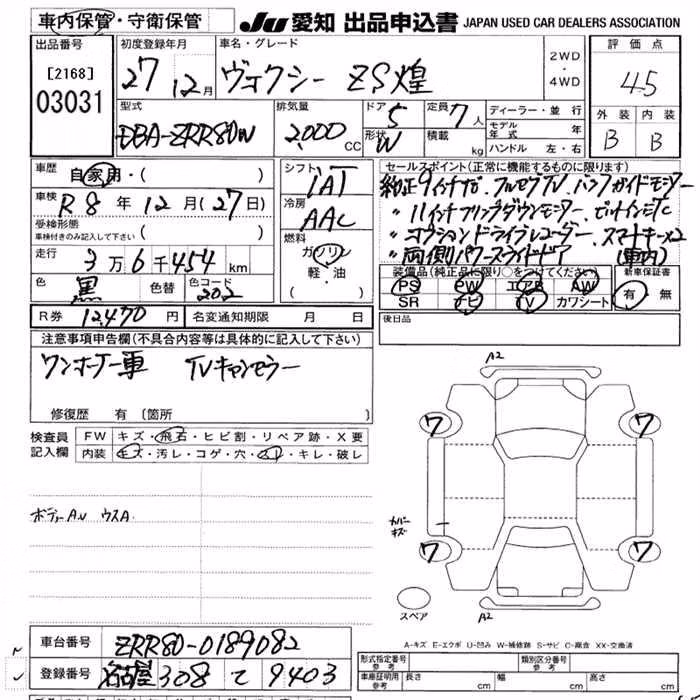 車内保管・守衛保管
JU 愛知 出品申込書 JAPAN USED CAR DEALERS ASSOCIATION
出品番号
[2168]
03031
初度登録年月
27 12月
車名・グレード
ヴォクシー ZS煌
2WD
・
4WD
評価点
4.5
型式
DBA-ZRR80W
排気量
2,000 CC
ドア 5
形状 W
定員 7 人
積載 kg
ディーラー・並行
モデル年式 年
ハンドル 左・右
外装 内装
B B
車歴 自家用・( )
車検 R8年12月(27日)
受検形態
車検付きのみ記入して下さい ( )
走行 3万6千454km
色 黒 色替 色コード 202
シフト
IAT
冷房
AAC
燃料
ガソリン
軽・油
( )
セールスポイント(正常に機能するものに限ります)
純正9インチナビ.フルセグTV.バックガイドモニター
〃 11インチフリップダウンモニター.ビルトインETC
〃 オプションドライブレコーダー.スマートキーX2
〃 両側パワースライドドア (車内)
装備品(純正品に限り○をつけてください) 新車保証書
PS PW エアB AW 有・無
SR ナビ TV カワシート
R券 12,470円 名変通知期限 月 日
後日品
注意事項申告欄(不具合内容等は具体的に記入して下さい)
ワンオーナー車 TVキャンセラー
修復歴 有 〔箇所 〕
検査員記入欄
FW キズ・飛石・ヒビ割・リペア跡・X要
内装 キズ・汚レ・コゲ・穴・スレ・キレ・破レ
ボディーA.U ウスA.
A2
7 7
カバー
キズ
7 7
スペア
A2
A-キズ E-エクボ U-凹み W-補修跡 S-サビ C-腐食 XX-交換済
車台番号 ZRR80-0189082
登録番号 名古屋 308 て 9403
形式指定番号 参考 類別区分番号 参考
車庫証明用 参考 長さ cm 幅 cm 高さ cm